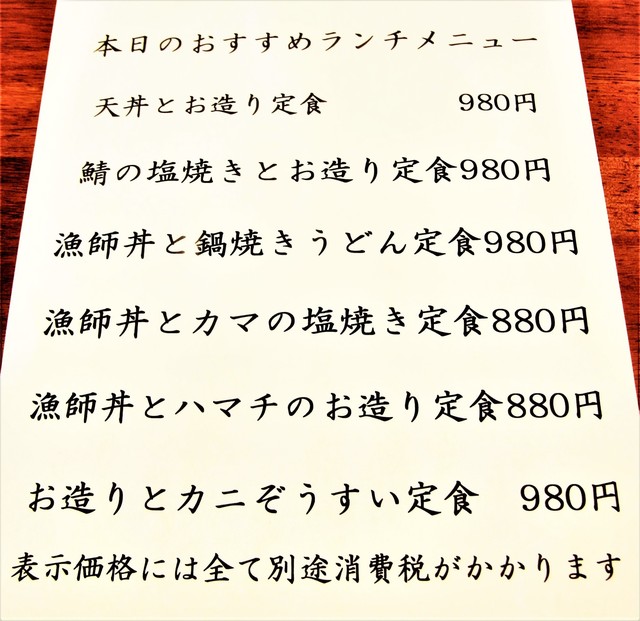 本日のおすすめランチメニュー
天丼とお造り定食 980円
鯖の塩焼きとお造り定食980円
漁師丼と鍋焼きうどん定食980円
漁師丼とカマの塩焼き定食880円
漁師丼とハマチのお造り定食880円
お造りとカニぞうすい定食 980円
表示価格には全て別途消費税がかかります